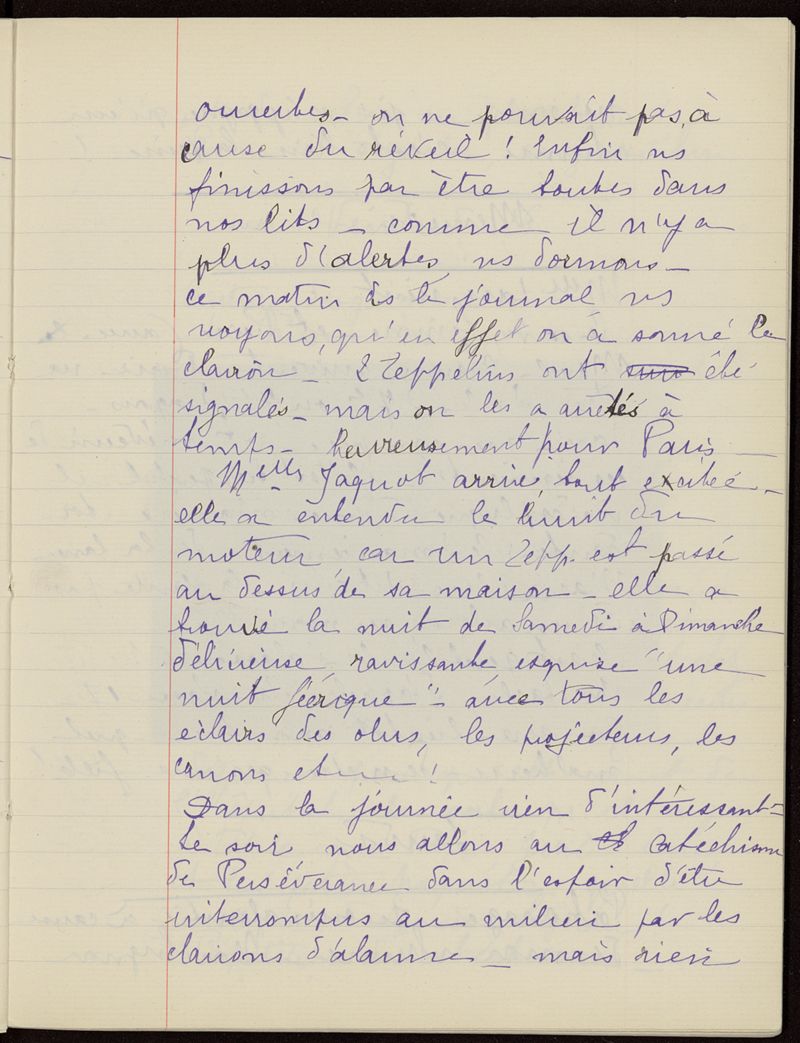 ouvertes - on ne pouvait pas, à
cause du réveil ! Enfin ns
finissons par être toutes dans
nos lits - comme il n'y a
plus d'alertes, ns dormons -
ce matin ds le journal ns
voyons, qu'en effet on a sonné le
clairon - 2 Zeppelins ont été
signalés - mais on les a arrêtés à
temps - heureusement pour Paris -
Melle Jaquot arrive, tout excitée -
elle a entendu le bruit du
moteur, car un Zepp. est passé
au dessus de sa maison - elle a
trouvé la nuit de Samedi à Dimanche
délicieuse, ravissante, exquise "une
nuit féérique" - avec tous les
eclairs des obus, les projecteurs, les
canons etc... !
Dans la journée rien d'intéressant -
Le soir nous allons au catéchisme
de Persévérance dans l'espoir d'être
interrompus au milieu par les
clairons d'alarme - mais rien